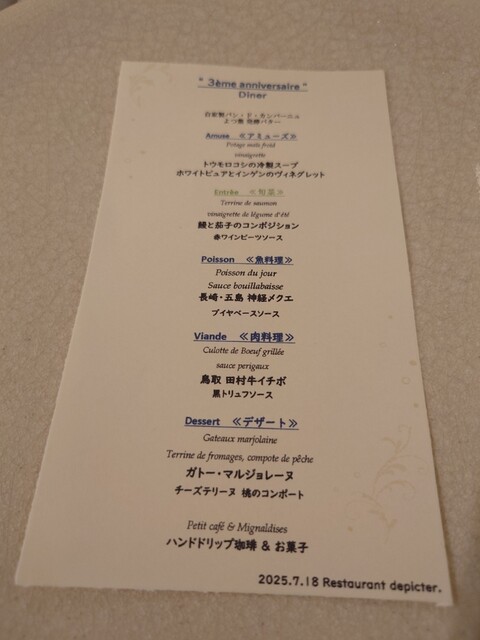 " 3ème anniversaire "
Diner
自家製パン・ド・カンパーニュ
よつ葉 発酵バター
Amuse 《アミューズ》
Potage maïs froid
vinaigrette
トウモロコシの冷製スープ
ホワイトピュアとインゲンのヴィネグレット
Entrée 《旬菜》
Terrine de saumon
vinaigrette de légume d'été
鰻と茄子のコンポジション
赤ワインビーツソース
Poisson 《魚料理》
Poisson du jour
Sauce bouillabaisse
長崎・五島 神経メクエ
ブイヤベースソース
Viande 《肉料理》
Culotte de Bœuf grillée
sauce perigaux
鳥取 田村牛イチボ
黒トリュフソース
Dessert 《デザート》
Gateaux marjolaine
Terrine de fromages, compote de pêche
ガトー・マルジョレーヌ
チーズテリーヌ 桃のコンポート
Petit café & Mignaldises
ハンドドリップ珈琲 & お菓子
2025.7.18 Restaurant depicter.